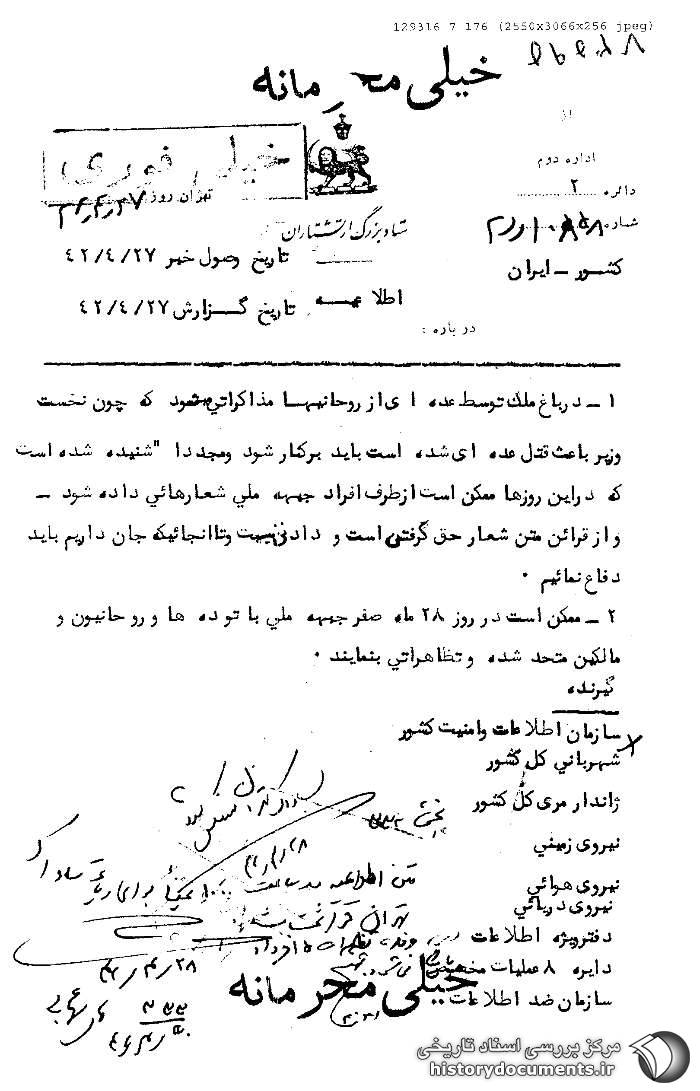 129316 7 176 (2550x3066x256 jpeg)
خیلی محرمانه
از
اداره دوم
دائره ۲
شماره
کشور – ایران
خیلی فوری
تهران روز
ستاد بزرگ ارتشتاران
تاریخ وصول خبر ۴۲/۴/۲۷
اطلاعیه
تاریخ گزارش ۴۲/۴/۲۷
درباره :
۱ – در باغ ملک توسط عده ای از روحانیها مذاکراتی میشود که چون نخست
وزیر باعث قتل عده ای شده است باید برکنار شود ومجددا" شنیده شده است
که در این روزها ممکن است از طرف افراد جبهه ملی شعارهائی داده شود –
و از قرائن متن شعار حق گرفتنی است و دادنی نیست وتا انجائیکه جان داریم باید
دفاع نمائیم ۰
۲ – ممکن است در روز ۲۸ ماه صفر جبهه ملی با توده ها و روحانیون و
مالکین متحد شده و تظاهراتی بنمایند ۰
گیرنده
سازمان اطلاعات وامنیت کشور
شهربانی کل کشور
ژاندارمری کل کشور
نیروی زمینی
نیروی هوائی
نیروی دریائی
دفترویژه اطلاعات
دایره ۸ عملیات
سازمان ضد اطلاعات
متن اطلاعیه
تهران قرائت شد
۴۲/۴/۲۸
خیلی محرمانه
مرکز بررسی اسناد تاریخی
historydocuments.ir